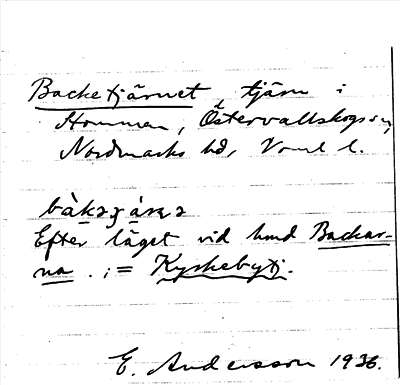 Backetjärnet tjärn i
Homman, Östervallskogs sn,
Nordmarks hd, Vrml l.
bàkaɟä́ṇa
Efter läget vid hmd Backar-
na. ; = Kyrkebytj.
E. Andersson 1936.